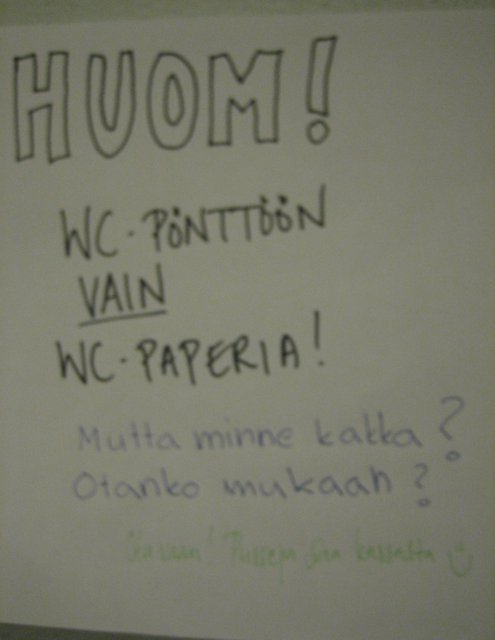 HUOM!
WC-PÖNTTÖÖN
VAIN
WC-PAPERIA!
Mutta minne kakka?
Otanko mukaan?
Pusseja saa kassalta